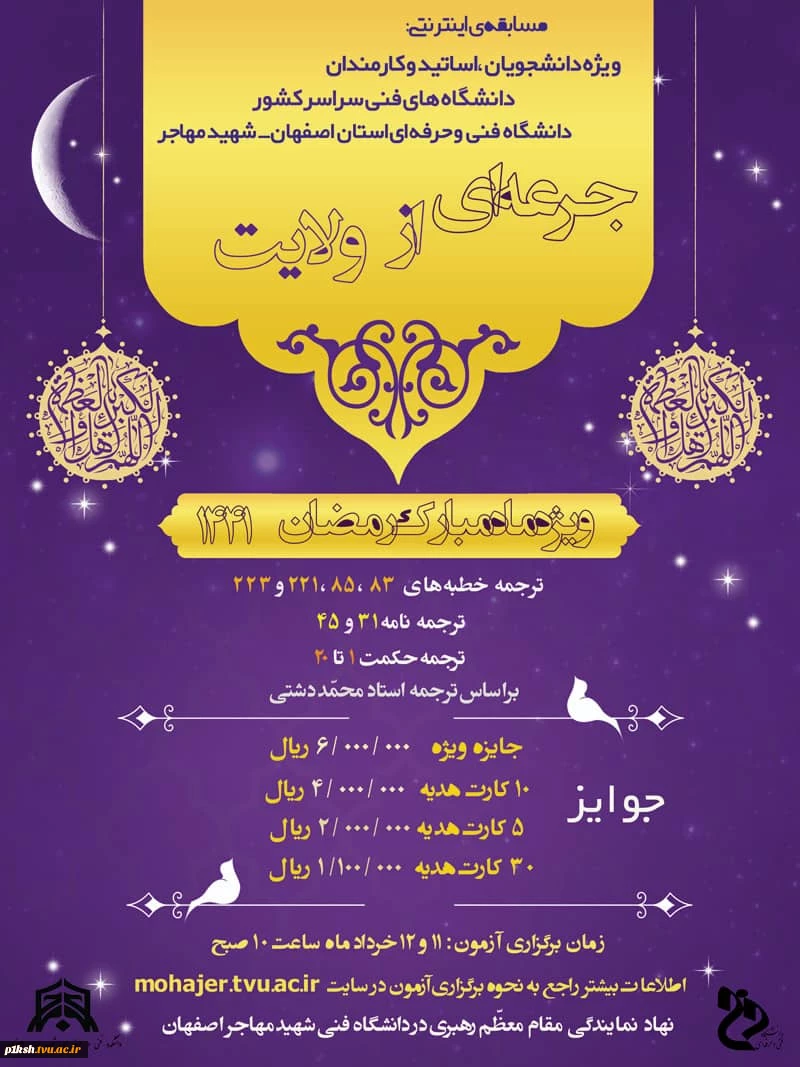 مسابقه‌ی اینترنتی:
ویژه دانشجویان ،اساتید و کارمندان
دانشگاه های فنی سراسر کشور
دانشگاه فنی و حرفه ای استان اصفهان_ شهید مهاجر
جرعه‌ای از ولایت
اللهم اهل الکبریاء والعظمة
اللهم اهل الکبریاء والعظمة
ویژه ماه مبارک رمضان ۱۴۴۱
ترجمه خطبه‌های ۸۳ ،۸۵ ،۲۲۱ و ۲۲۳
ترجمه نامه ۳۱ و ۴۵
ترجمه حکمت ۱ تا ۲۰
براساس ترجمه استاد محمّد دشتی
جوایز
جایزه ویژه ۶/۰۰۰/۰۰۰ ریال
۱۰ کارت هدیه ۴/۰۰۰/۰۰۰ ریال
۵ کارت هدیه ۲/۰۰۰/۰۰۰ ریال
۳۰ کارت هدیه ۱/۱۰۰/۰۰۰ ریال
زمان برگزاری آزمون : ۱۱ و ۱۲ خرداد ماه ساعت ۱۰ صبح
اطلاعات بیشتر راجع به نحوه برگزاری آزمون در سایت mohajer.tvu.ac.ir
نهاد نمایندگی مقام معظّم رهبری در دانشگاه فنی شهید مهاجر اصفهان
p1ksh.tvu.ac.ir